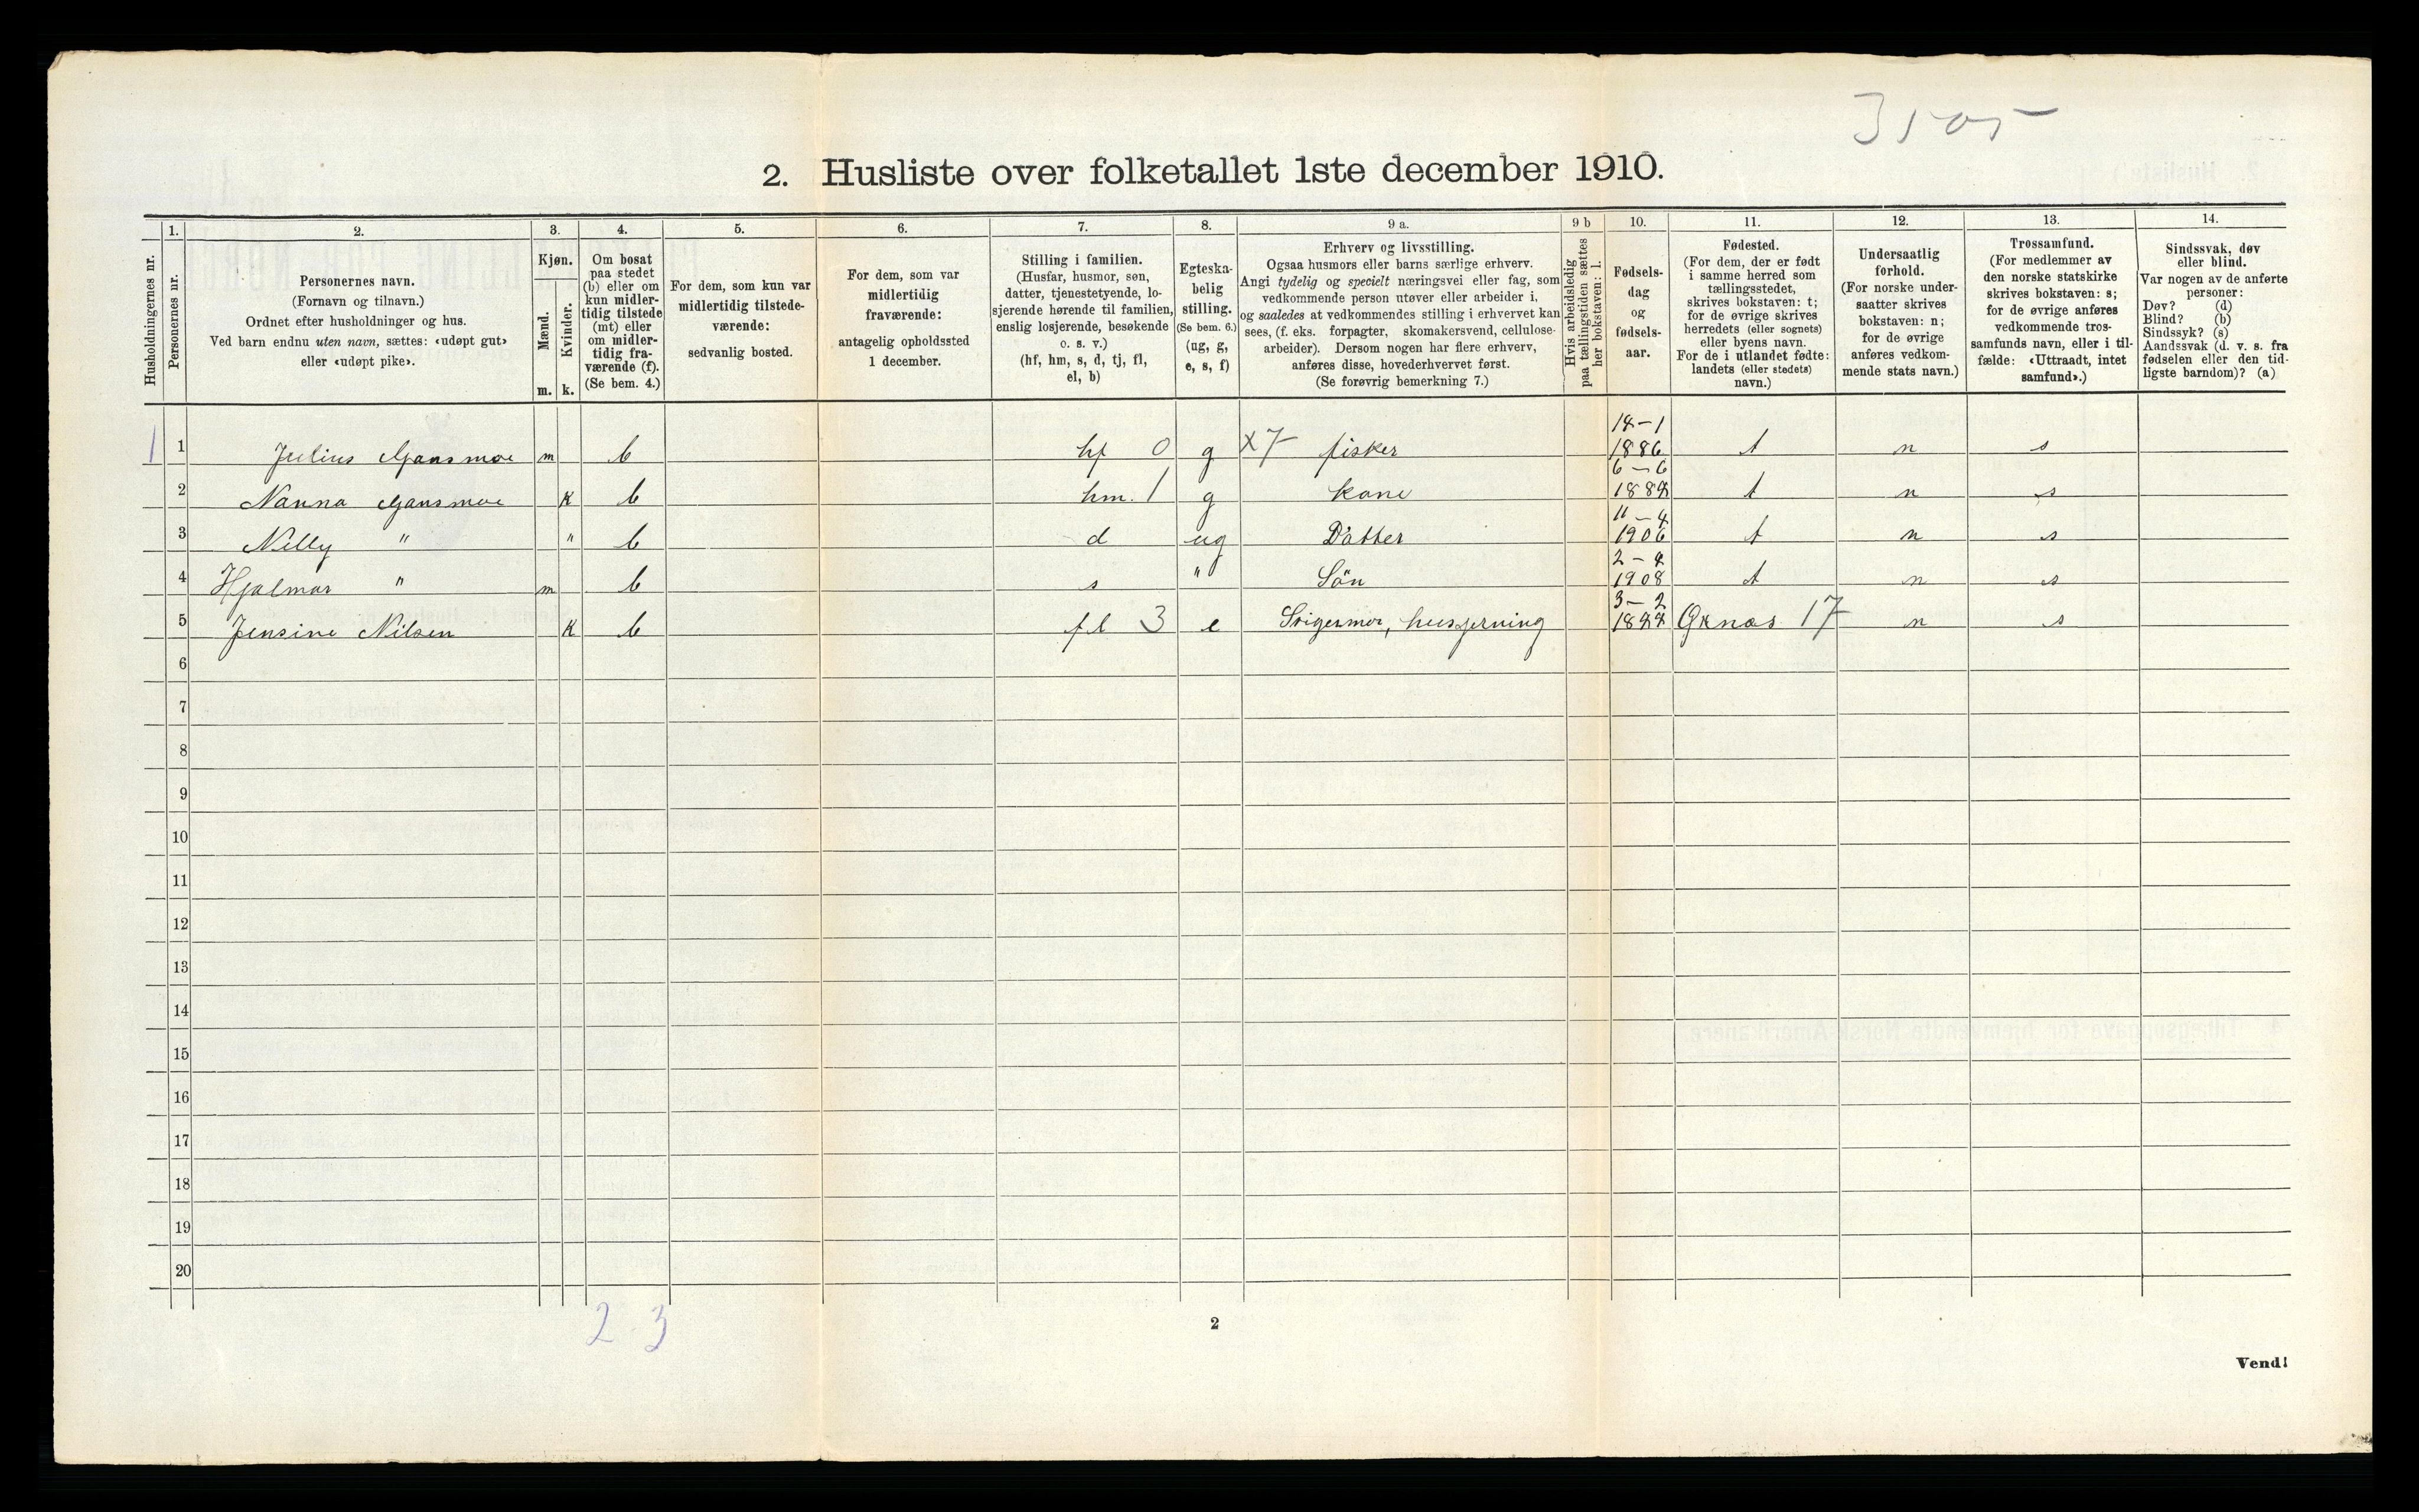 2. Husliste over folketallet 1ste december 1910.
Husholdningernes nr.
1. Personernes nr.
2. Personernes navn.
(Fornavn og tilnavn.)
Ordnet efter husholdninger og hus.
Ved barn endnu uten navn, sættes: «udøpt gut»
eller «udøpt pike».
3. Kjøn.
Mænd. m.
Kvinder. k.
4. Om bosat
paa stedet
(b) eller om
kun midler-
tidig tilstede
(mt) eller
om midler-
tidig fra-
værende (f).
(Se bem. 4.)
5. For dem, som kun var
midlertidig tilstede-
værende:
sedvanlig bosted.
6. For dem, som var
midlertidig
fraværende:
antagelig opholdssted
1 december.
7. Stilling i familien.
(Husfar, husmor, søn,
datter, tjenestetyende, lo-
sjerende hørende til familien,
enslig losjerende, besøkende
o. s. v.)
(hf, hm, s, d, tj, fl,
el, b)
8. Egteska-
belig
stilling.
(Se bem. 6.)
(ug, g,
e, s, f)
9 a. Erhverv og livsstilling.
Ogsaa husmors eller barns særlige erhverv.
Angi tydelig og specielt næringsvei eller fag, som
vedkommende person utøver eller arbeider i,
og saaledes at vedkommendes stilling i erhvervet kan
sees, (f. eks. forpagter, skomakersvend, cellulose-
arbeider). Dersom nogen har flere erhverv,
anføres disse, hovederhvervet først.
(Se forøvrig bemerkning 7.)
9 b Hvis arbeidsledig
paa tællingstiden sættes
her bokstaven: l.
10. Fødsels-
dag
og
fødsels-
aar.
11. Fødested.
(For dem, der er født
i samme herred som
tællingsstedet,
skrives bokstaven: t;
for de øvrige skrives
herredets (eller sognets)
eller byens navn.
For de i utlandet fødte:
landets (eller stedets)
navn.)
12. Undersaatlig
forhold.
(For norske under-
saatter skrives
bokstaven: n;
for de øvrige
anføres vedkom-
mende stats navn.)
13. Trossamfund.
(For medlemmer av
den norske statskirke
skrives bokstaven: s;
for de øvrige anføres
vedkommende tros-
samfunds navn, eller i til-
fælde: «Uttraadt, intet
samfund».)
14. Sindssvak, døv
eller blind.
Var nogen av de anførte
personer:
Døv? (d)
Blind? (b)
Sindssyk? (s)
Aandssvak (d. v. s. fra
fødselen eller den tid-
ligste barndom)? (a)
1 1 Julius m b hf 0 g x7 fisker 1886 t n s
2 Nanna k b hm. 1 g kone 6-6 t n s
3 Nelly " " b d ug Datter 1906 t n s
4 Hjalmar " m b s " Sön 1908 t n s
5 Jensine Nilsen k b fl 3 e Svigermor, husgjerning 3-2 17 n s
6
7
8
9
10
11
12
13
14
15
16
17
18
19
20
2 3
2
Vend!